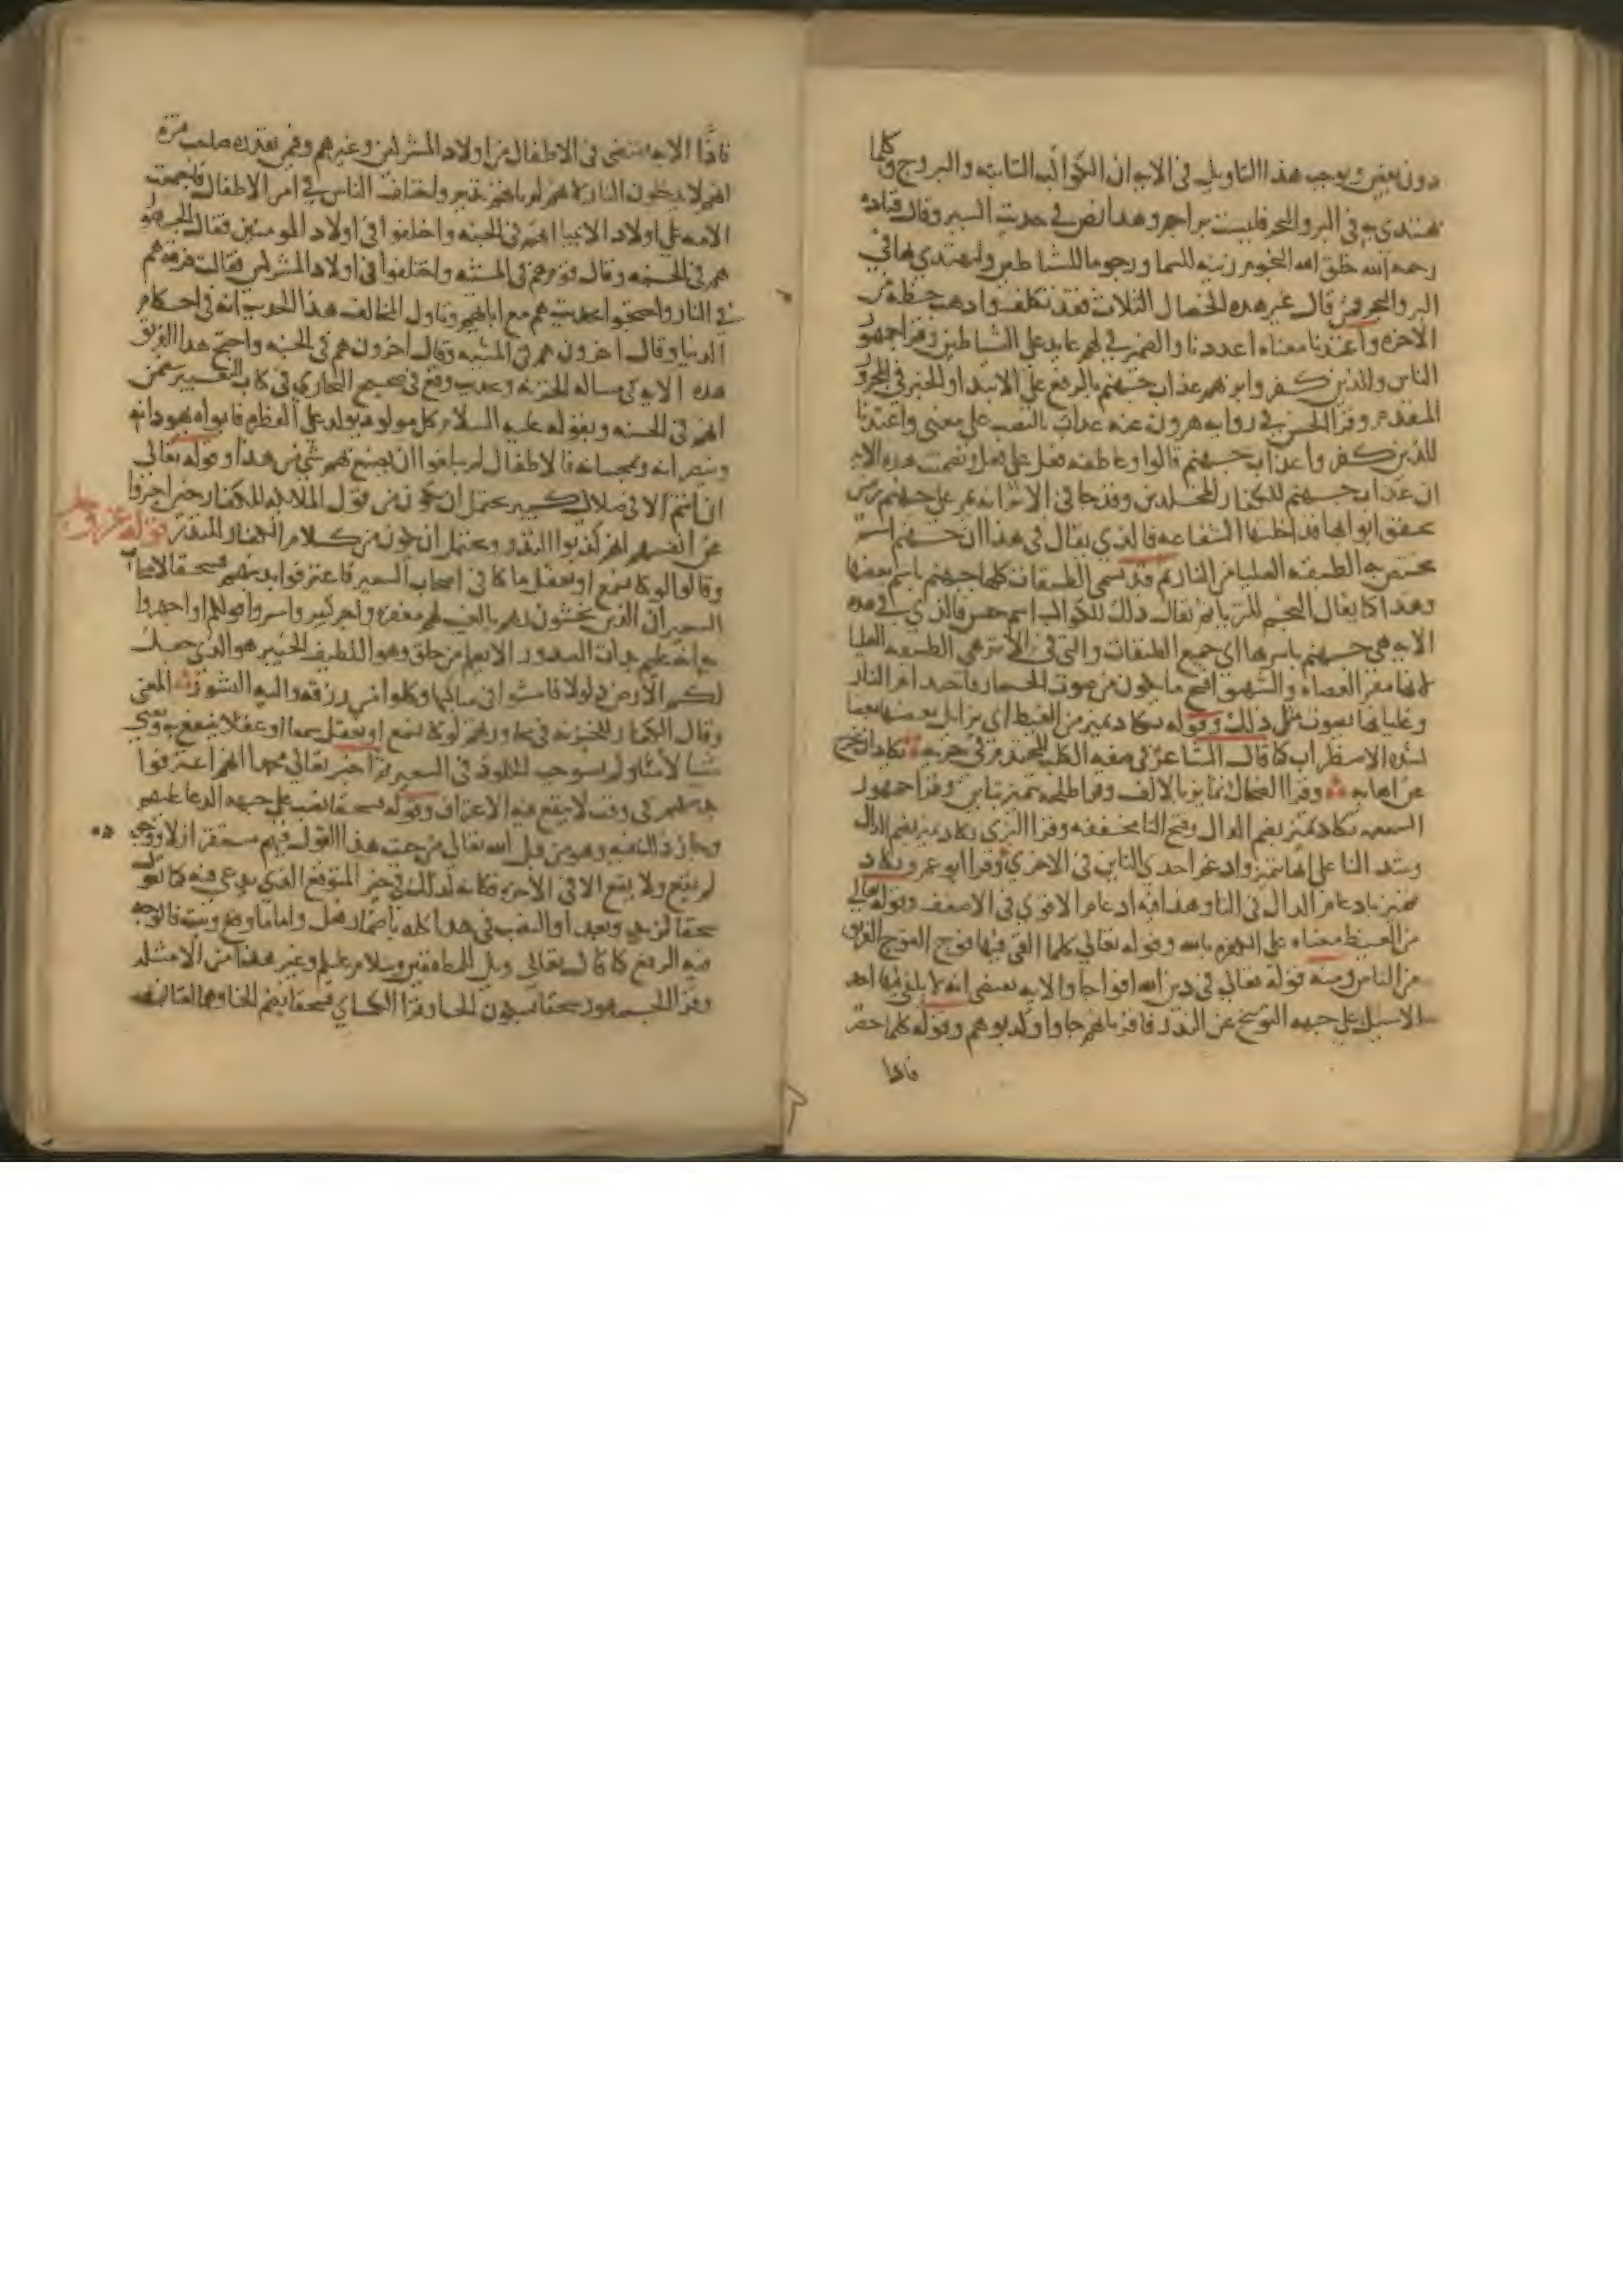 دون بعض ويوجب هذا التاويل في الاية ان الكواكب الثابتة والبروج وكلما
يهتدى به في البر والبحر فليست براجم وهذا نص في حديث السير وقال قتاده
رحمه الله خلق الله النجوم زينه للسما ورجوما للشياطين وليهتدى بها في
البر والبحر فمن قال غير هذه الخصال الثلاث فقد تكلف واذهب حظه من
الاخره واعتدنا معناه اعددنا والضمير في لهم عايد على الشياطين وقرا جمهور
الناس وللذين كفروا بربهم عذاب جهنم بالرفع على الابتدا والخبر في المجرور
المتقدم وقرا الحسن في رواية هرون عنه عذاب بالنصب على معنى واعتدنا
للذين كفروا عذاب جهنم قالوا وعاطفه فعل على فعل وتضمنت هذه الاية
ان عذاب جهنم للكفار المخلدين وقد جا في الاثر انه يمر على جهنم زمن
تخفق ابوابها قد اخلتها الشفاعه فالذي يقال في هذا ان جهنم اسم
تختص به الطبقه العليا من النار ثم قد تسمى الطبقات كلها جهنم باسم بعضها
وهذا كما يقال النجم للثريا ثم يقال ذلك للكواكب اسم جنس فالذي في هذه
الاية هي جهنم باسرها اي جميع الطبقات والتي في الاثر هي الطبقه العليا
لانها مقر العصاه والشهيق اقبح ما يكون من صوت الحمار فاحتدام النار
وغليانها بصوت مثل ذلك وقوله تكاد تميز من الغيظ اي يزايل بعضها بعضا
لشده الاضطراب كما قال الشاعر في صفه الكلب المحتدم في جريه تكاد ان تخرج
من اهابه وقرا الضحاك تمايز بالالف وقرا طلحه تتميز بتاين وقرا جمهور
السبعه تكاد تميز بضم الدال وفتح التا مخففه وقرا البزي تكاد تميز بضم الدال
وشد التا على انها تتميز وادغم احدى التاين في الاخري وقرا ابو عمرو تكاد
تميز بادغام الدال في التا وهذا فيه ادغام الاقوي في الاضعف وقوله تعالى
من الغيظ معناه على الكفره بالله وقوله تعالي كلما القي فيها فوج الفوج الفريق
من الناس ومنه قوله تعالي في دين الله افواجا والاية تقتضي انه لا يلقى فيها احد
الا سيل على جهه التوبيخ عن النذر فاقر بانهم جاوا وكذبوهم وقوله كلما حصر
فاذا
فاذا الاية تقتضي في الاطفال من اولاد المشركين وغيرهم وفيمن نقدره صاحب فتره
انهم لا يدخلون النار لانهم لم ياتهم نذير واختلف الناس في امر الاطفال فاجمعت
الامه على اولاد الانبيا انهم في الجنه واختلفوا في اولاد المومنين فقال الجمهور
هم في الجنه وقال قوم هم في المشيه واختلفوا في اولاد المشركين فقالت فرقه هم
في النار واحتجوا بحديث هم مع ابايهم وتاول المخالف هذا الحديث انه في احكام
الدنيا وقال اخرون هم في المشيه وقال اخرون هم في الجنه واحتج هذا الفريق
هذه الاية في مساله الخزنه وحديث وقع في صحيح البخاري في كتاب التعبير يتضمن
انهم في الجنه وبقوله عليه السلام كل مولود يولد على الفطره فابواه يهودانه
وينصرانه ويمجسانه فالاطفال لم يبلغوا ان يصنع بهم شي من هذا وقوله تعالى
ان انتم الا في ضلال كبير يحتمل ان يكون من قول الملايكه للكفار حين اخبروا
عن انفسهم انهم كذبوا النذر ويحتمل ان يكون من كلام الكفار للنذر قوله عز وجل
وقالوا لو كنا نسمع او نعقل ما كنا في اصحاب السعير فاعترفوا بذنبهم فسحقا لاصحاب
السعير ان الذين يخشون ربهم بالغيب لهم مغفره واجر كبير واسروا قولكم او اجهروا
به انه عليم بذات الصدور الا يعلم من خلق وهو اللطيف الخبير هو الذي جعل
لكم الارض ذلولا فامشوا في مناكبها وكلوا من رزقه واليه النشور المعنى
وقال الكفار للخزنه في محاورتهم لو كنا نسمع او نعقل سمعا او عقلا ينتفع به ويغني
شيا لامنا ولم نستوجب الخلود في السعير ثم اخبر تعالى محمدا انهم اعترفوا
بذنبهم في وقت لا ينفع فيه الاعتراف وقوله فسحقا نصب على جهه الدعا عليهم
وجاز ذلك فيه وهو من قبل الله تعالى من حيث هذا القول فيهم مستقر ازلا ووجوده
لم يقع ولا يقع الا في الاخره فكانه لذلك في حيز المتوقع الذي يدعى فيه كما تقول
سحقا لزيد وبعدا والنصب في هذا كله باضمار فعل واما ما وقع وثبت فالوجه
فيه الرفع كما قال تعالى ويل للمطففين وسلام عليكم وغير هذا من الامثله
وقرا الجمهور فسحقا بسكون الحا وقرا الكساي فسحقا بضم الحا وهما لغتان